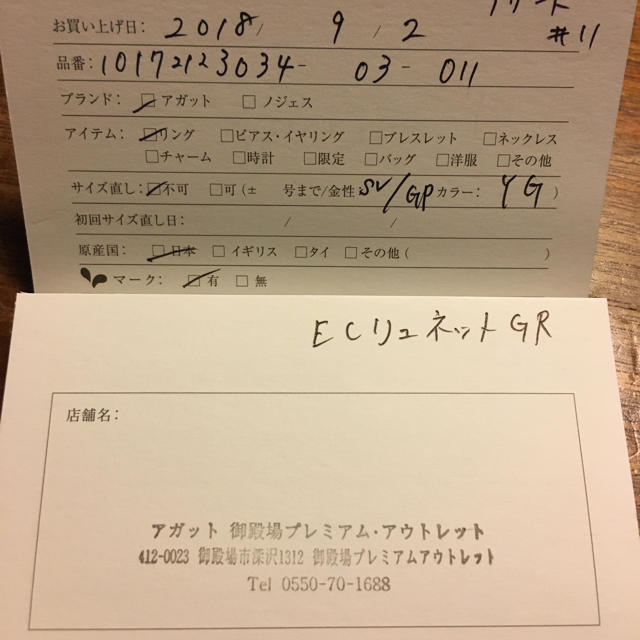 お買い上げ日: 2018/ 9 / 2 #11
品番: 10172123034- 03- 011
ブランド: ☑アガット □ノジェス
アイテム: ☑リング □ピアス・イヤリング □ブレスレット □ネックレス
□チャーム □時計 □限定 □バッグ □洋服 □その他
サイズ直し: ☑不可 □可 (± 号まで/金性: SV/GP カラー: YG )
初回サイズ直し日: / /
原産国: ☑日本 □イギリス □タイ □その他 ( )
マーク: ☑有 □無
ECリュネットGR
店舗名:
アガット 御殿場プレミアム・アウトレット
412-0023 御殿場市深沢1312 御殿場プレミアムアウトレット
Tel 0550-70-1688